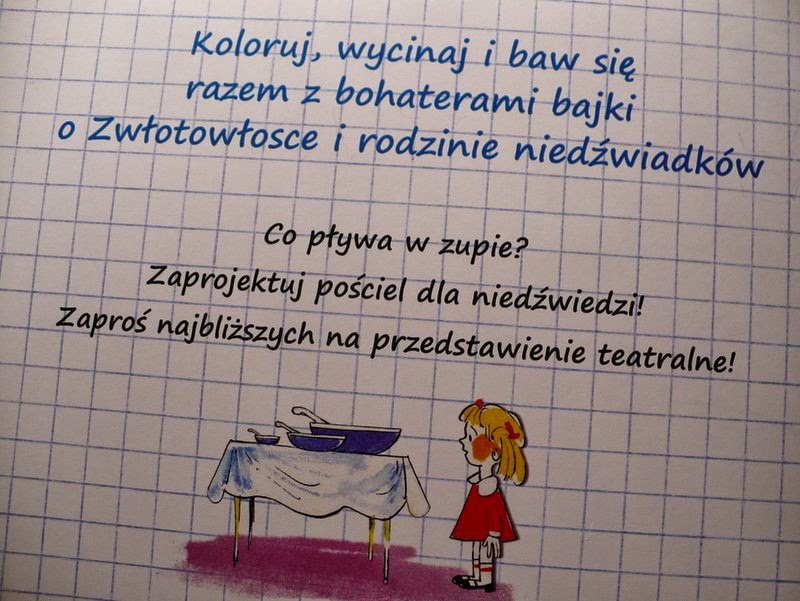 Koloruj, wycinaj i baw się
razem z bohaterami bajki
o Zwłotowłosce i rodzinie niedźwiadków
Co pływa w zupie?
Zaprojektuj pościel dla niedźwiedzi!
Zaproś najbliższych na przedstawienie teatralne!